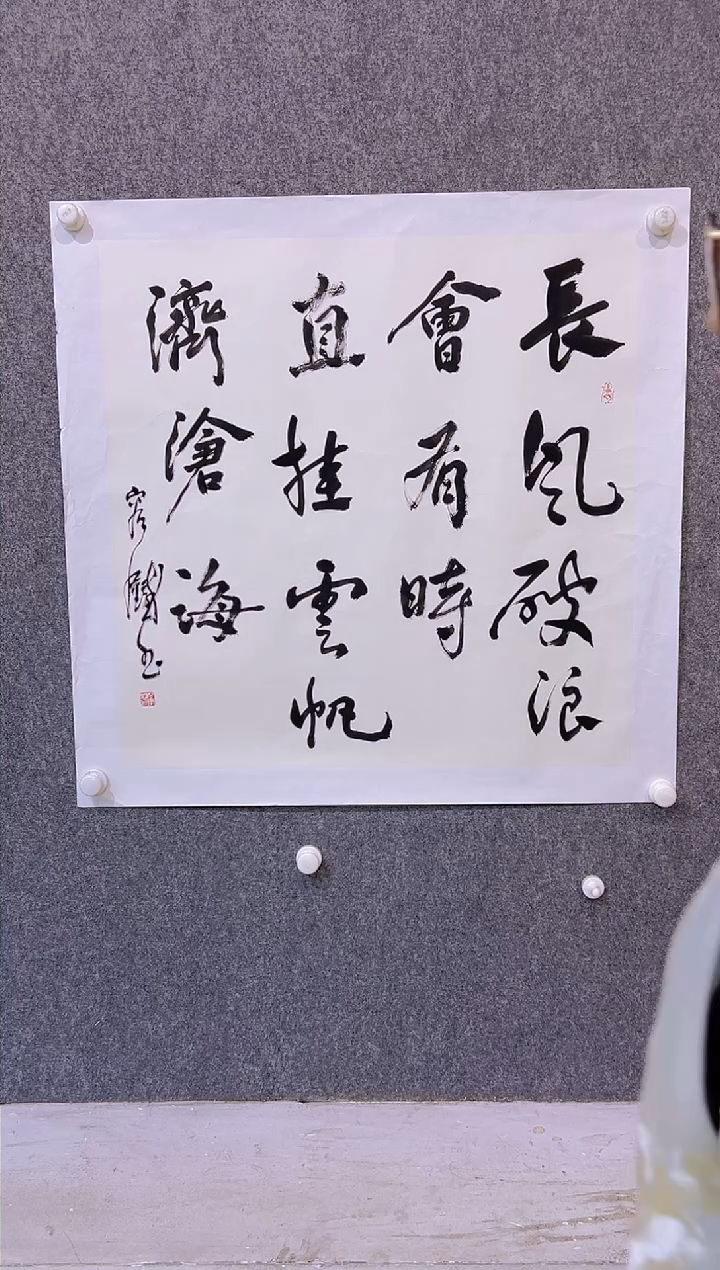 長風破浪
會有時
直挂雲帆
濟滄海